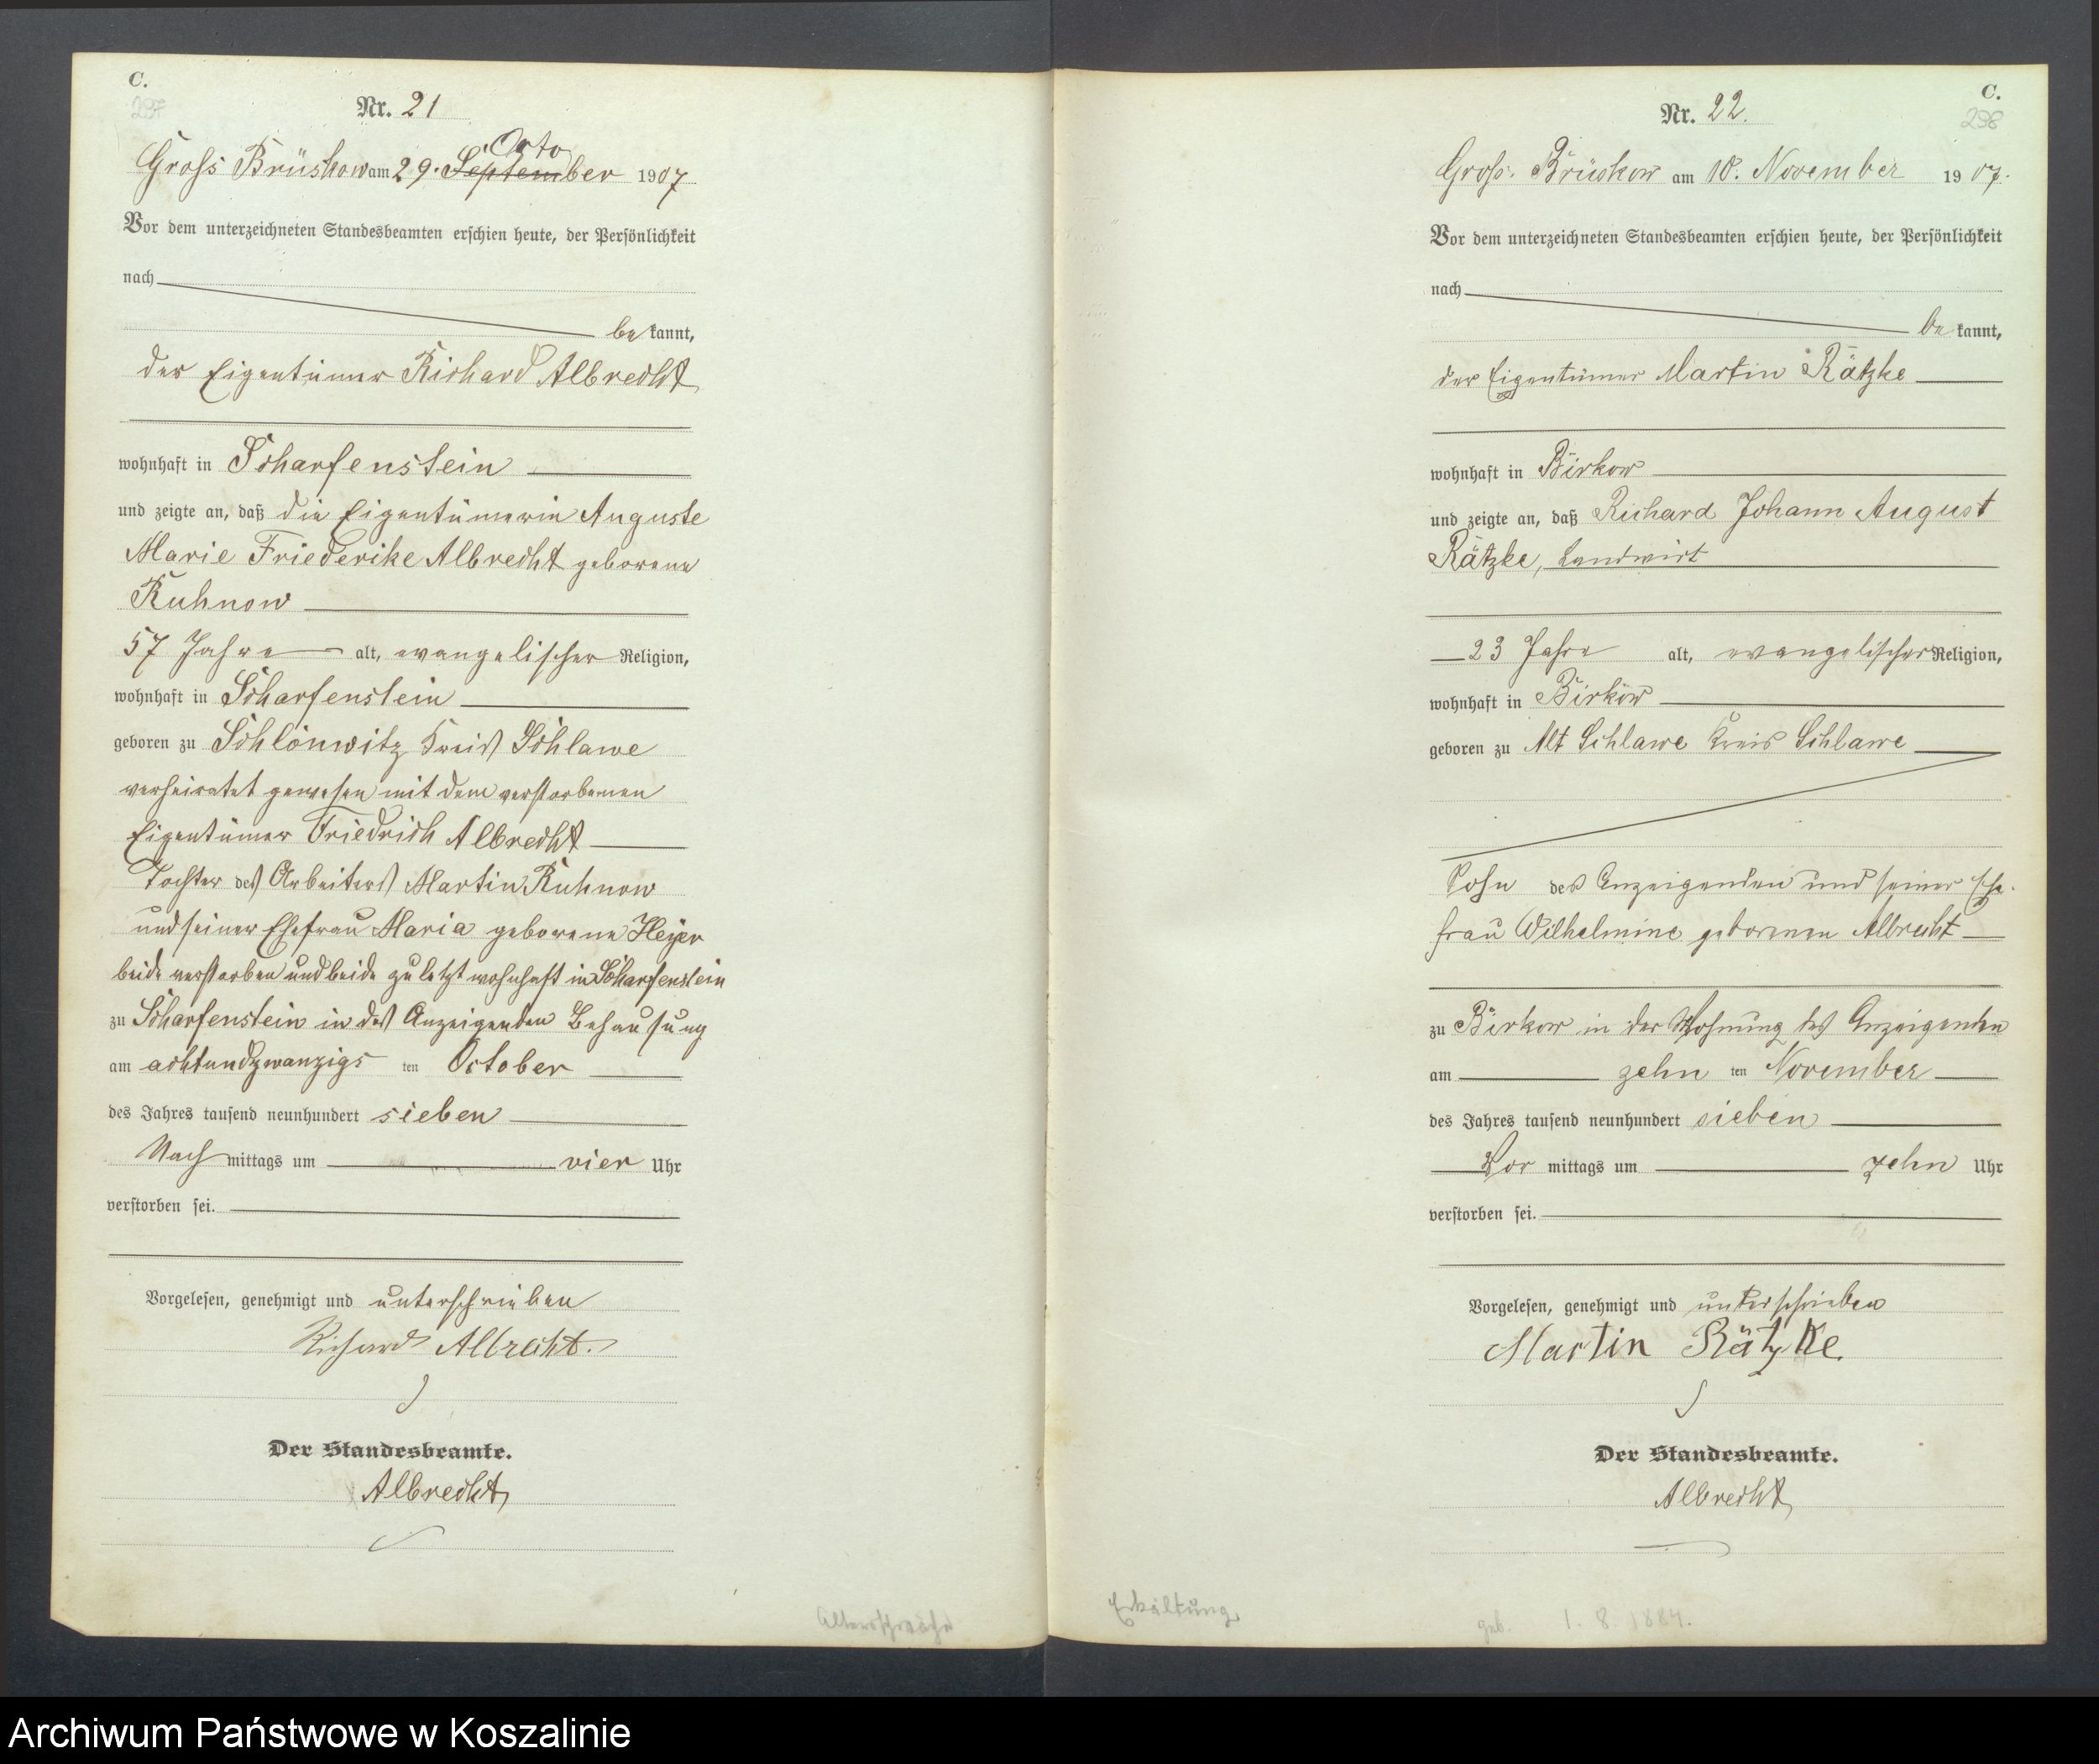 C.
297
Nr. 21
Octo
Gross Brüskow am 29. September 1907
Vor dem unterzeichneten Standesbeamten erschien heute, der Persönlichkeit
nach
bekannt,
der Eigentümer Richard Albrecht
wohnhaft in Scharfenstein
und zeigte an, daß die Eigentümerin Auguste
Marie Friederike Albrecht geborene
Kuhnow
57 Jahre alt, evangelischer Religion,
wohnhaft in Scharfenstein
geboren zu Schlönwitz Kreis Schlawe
verheiratet gewesen mit dem verstorbenen
Eigentümer Friedrich Albrecht
Tochter des Arbeiters Martin Kuhnow
und seiner Ehefrau Maria geborene Heyer
beide verstorben und beide zuletzt wohnhaft in Scharfenstein
zu Scharfenstein in des Anzeigenden Behausung
am achtundzwanzigsten October
des Jahres tausend neunhundert sieben
Nachmittags um vier Uhr
verstorben sei.
Vorgelesen, genehmigt und unterschrieben
Richard Albrecht.
Der Standesbeamte.
Albrecht
Altersschwäche
C.
298
Nr. 22.
Gross Brüskow am 10. November 1907.
Vor dem unterzeichneten Standesbeamten erschien heute, der Persönlichkeit
nach
bekannt,
der Eigentümer Martin Rätzke
wohnhaft in Birkow
und zeigte an, daß Richard Johann August
Rätzke, Landwirt
23 Jahre alt, evangelischer Religion,
wohnhaft in Birkow
geboren zu Alt Schlawe Kreis Schlawe
Sohn des Anzeigenden und seiner Ehe-
frau Wilhelmine geborenen Albrecht
zu Birkow in der Wohnung des Anzeigenden
am zehnten November
des Jahres tausend neunhundert sieben
Vormittags um zehn Uhr
verstorben sei.
Vorgelesen, genehmigt und unterschrieben
Martin Rätzke.
Der Standesbeamte.
Albrecht
Erkältung
geb. 1. 8. 1884.
Archiwum Państwowe w Koszalinie